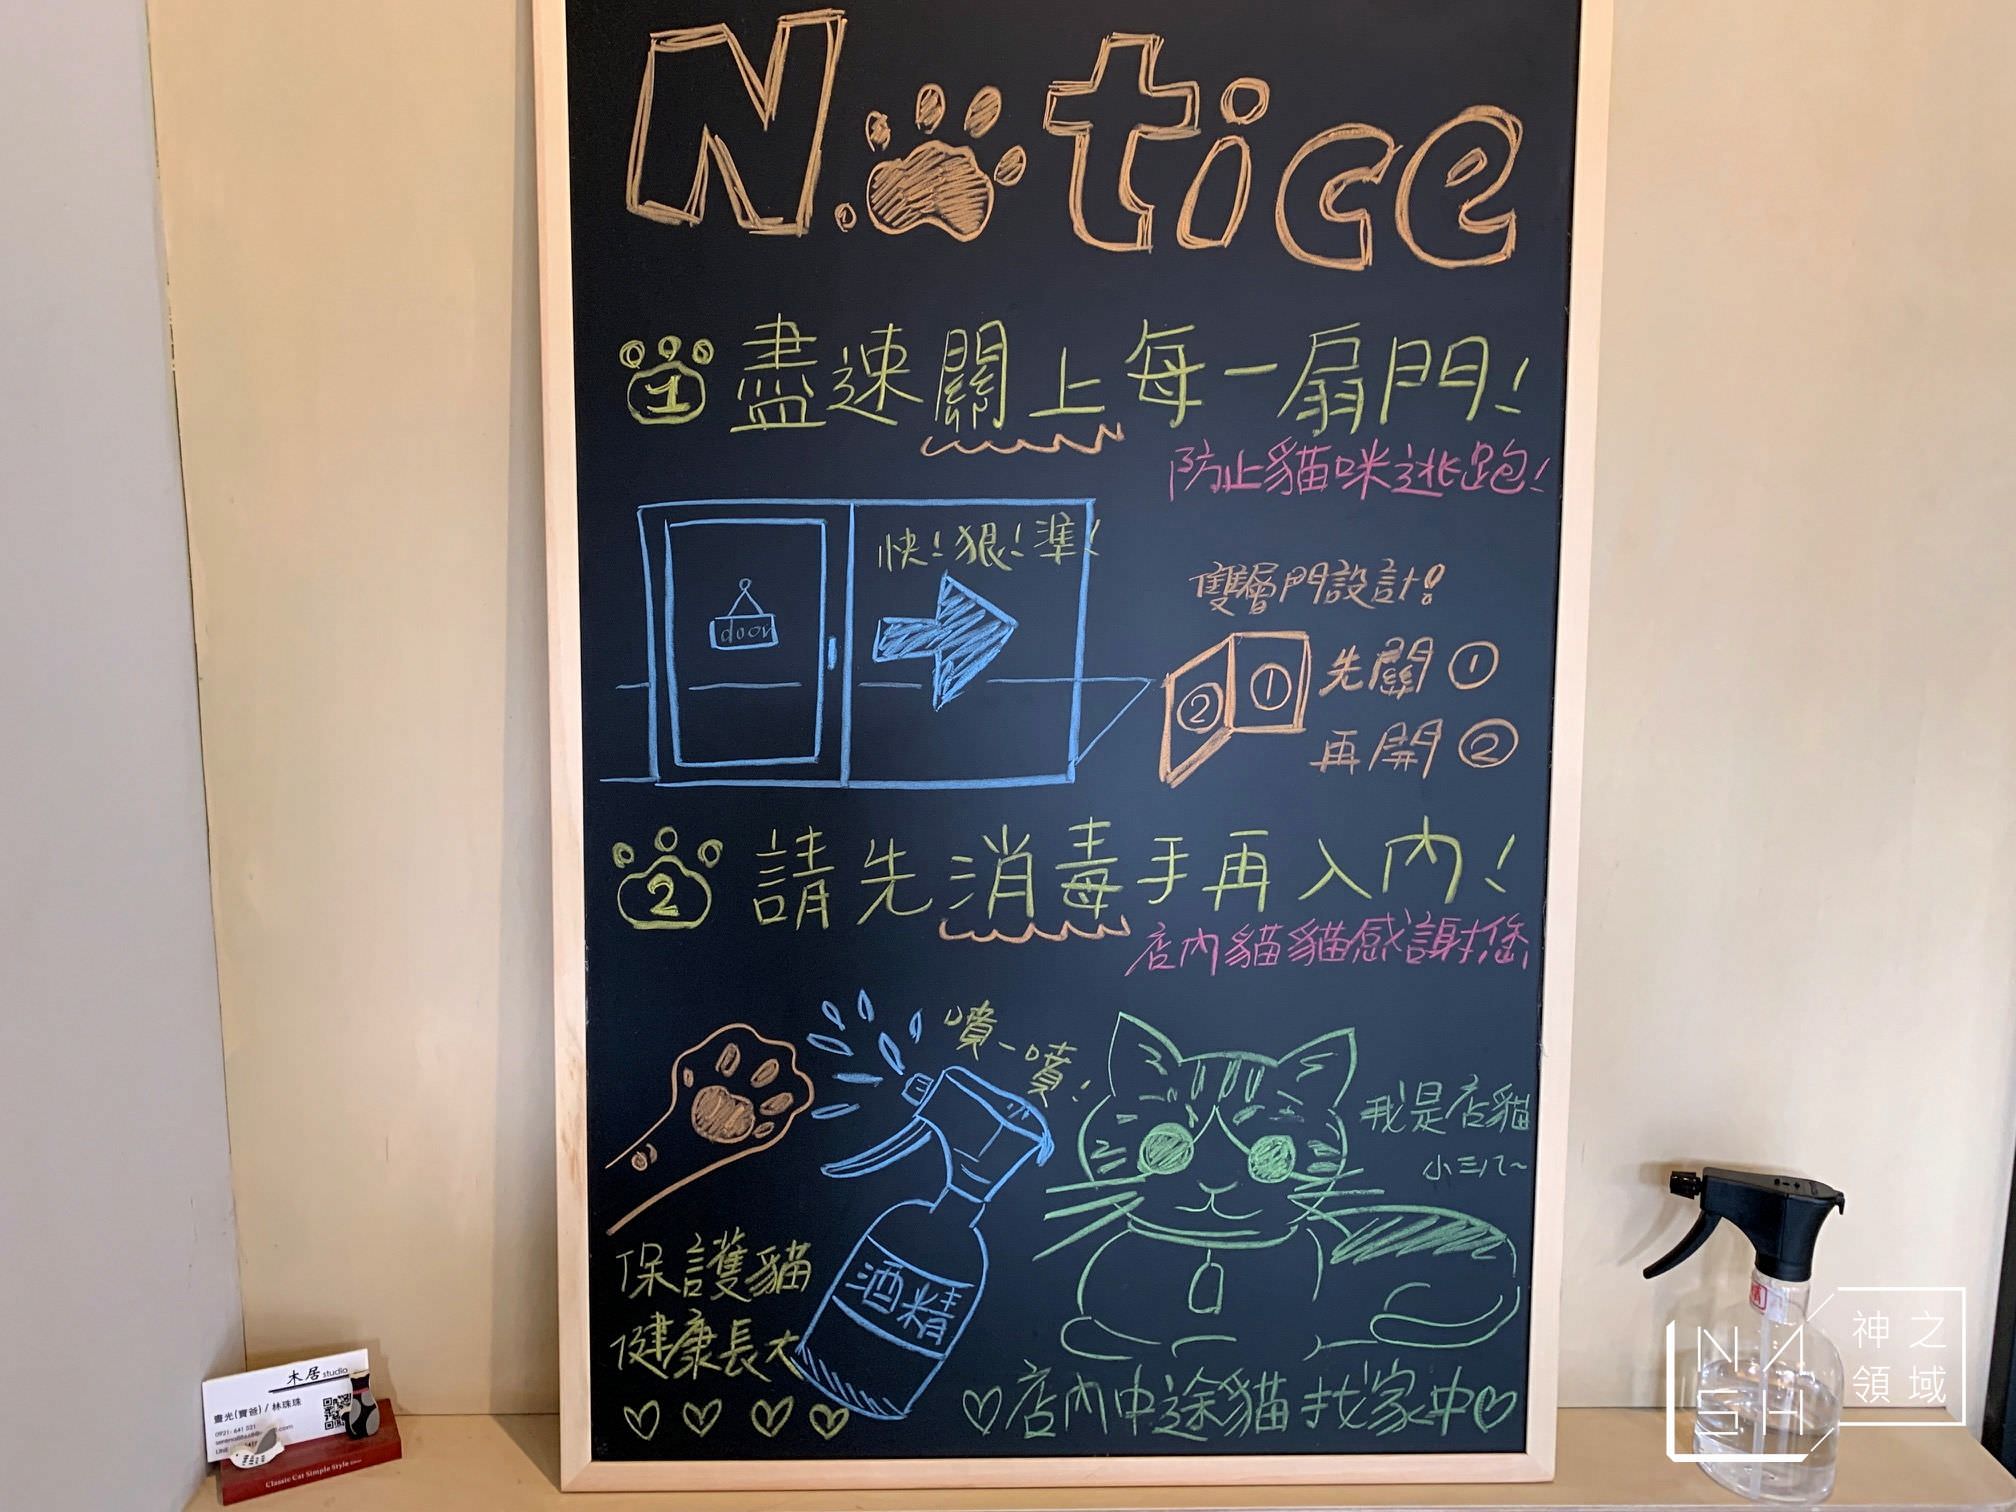 N.tice
1 盡速關上每一扇門!
防止貓咪逃跑!
快!狠!準!
door
雙層門設計!
② ①
先關①
再開②
2 請先消毒手再入內!
店內貓貓感謝您
噴一噴!
我是店貓
小三八~
保護貓
健康長大
酒精
♡店內中途貓找家中♡
木居 studio
畫光(寶爸) / 林珠珠
0921-641 521
LINE
Classic Cat Simple Style
NASH
神之
領域